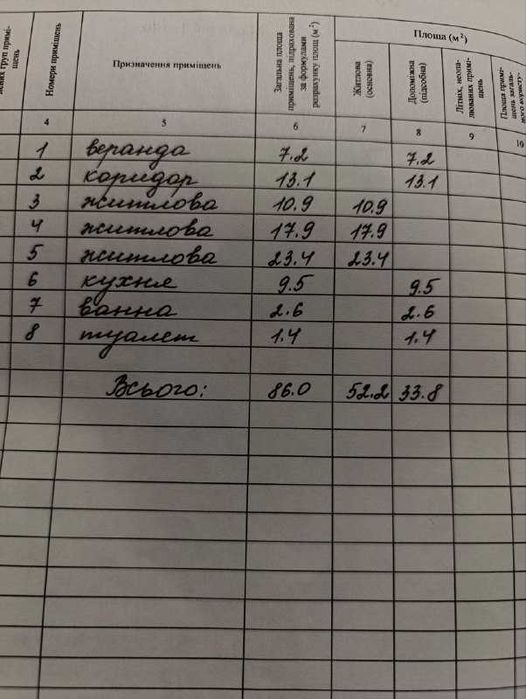 Площа (м²)
Номери приміщень
Призначення приміщень
Загальна площа
приміщень, підрахована
за формулами
розрахунку площ (м²)
Житлова
(основна)
Допоміжна
(підсобна)
Літніх, неопа-
люваних примі-
щень
Площа примі-
щень загаль-
ного користу-
4 5 6 7 8 9 10
1 веранда 7.2 7.2
2 коридор 13.1 13.1
3 житлова 10.9 10.9
4 житлова 17.9 17.9
5 житлова 23.4 23.4
6 кухня 9.5 9.5
7 ванна 2.6 2.6
8 туалет 1.4 1.4
Всього: 86.0 52.2 33.8